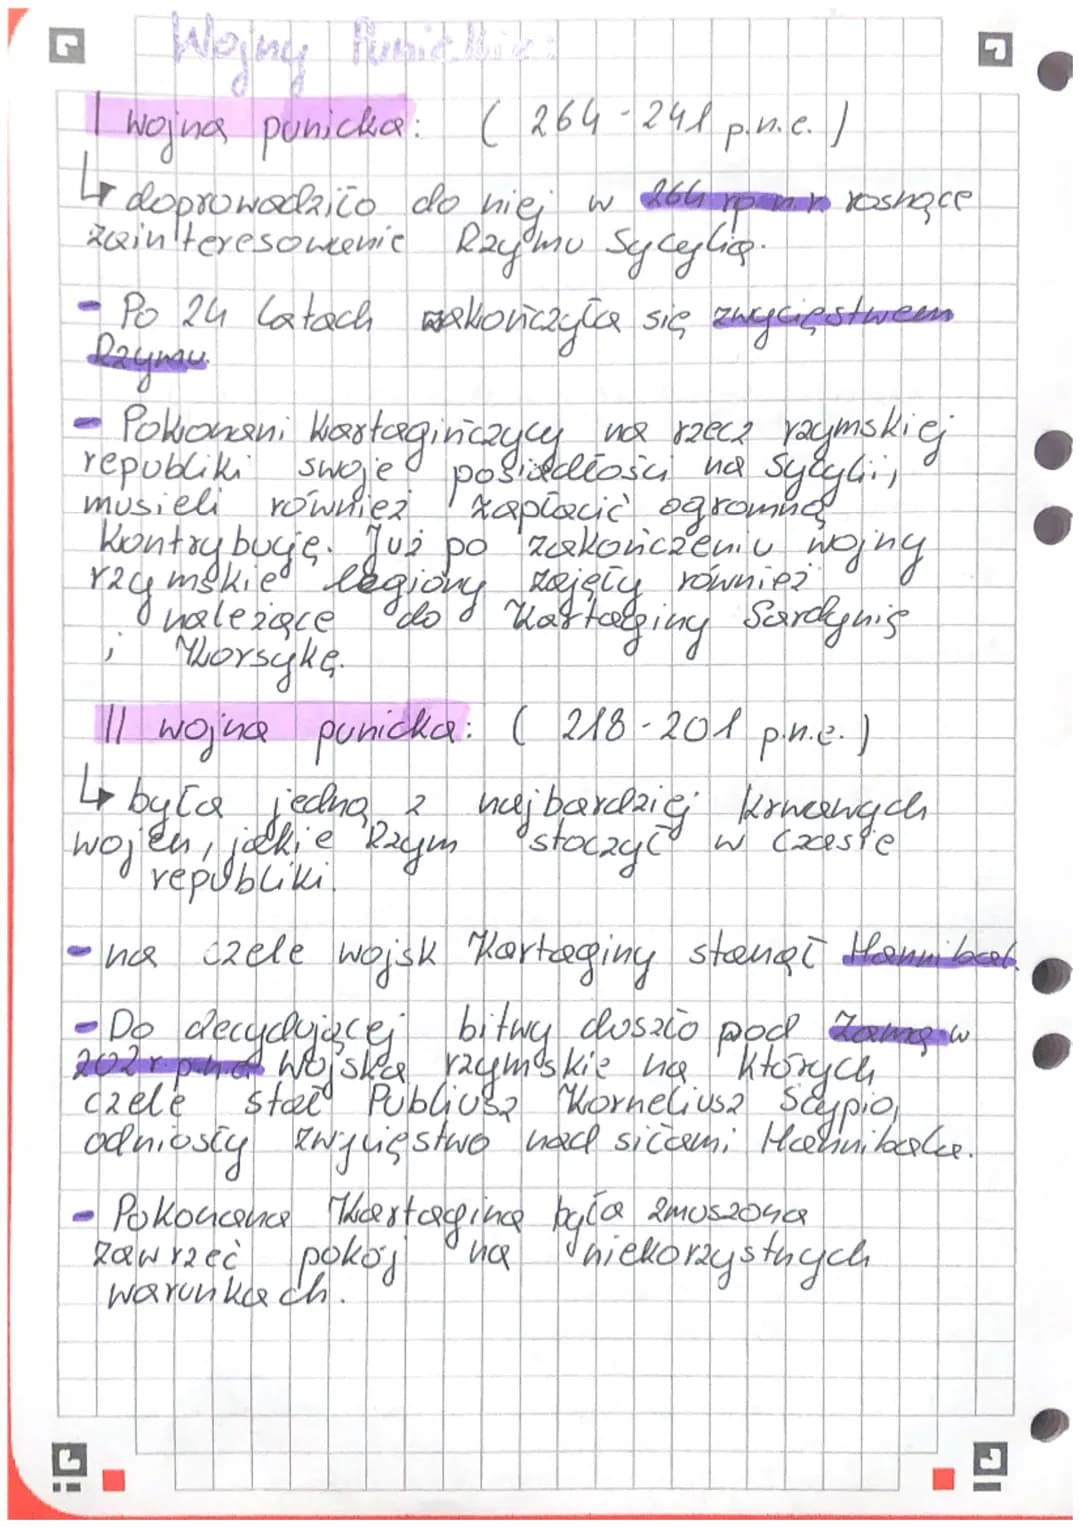 Wojny Punickie:
I wojna punicka: ( 264-241 p.n.e. )
↳ doprowadziło do niej w 264 rp.n.e. rosnące
zainteresowanie Rzymu Sycylią.
- Po 24 latach zakończyła się zwycięstwem
Rzymu.
- Pokonani Kartagińczycy na rzecz rzymskiej
republiki swoje posiadłości na Sycylii,
musieli również zapłacić ogromną
kontrybucję. Już po zakończeniu wojny
rzymskie legiony zajęły również
należące do Kartaginy Sardynię
i Korsykę.
II wojna punicka: ( 218-201 p.n.e. )
↳ była jedną z najbardziej krwawych
wojen, jakie Rzym stoczył w czasie
republiki.
- na czele wojsk Kartaginy stanął Hannibal.
- Do decydującej bitwy doszło pod Zamą w
202r p.n.e Wojska rzymskie na których
czele stał Publiusz Korneliusz Scypio,
odniosły zwycięstwo nad siłami Hannibala.
- Pokonana Kartagina była zmuszona
zawrzeć pokój na niekorzystnych
warunkach.